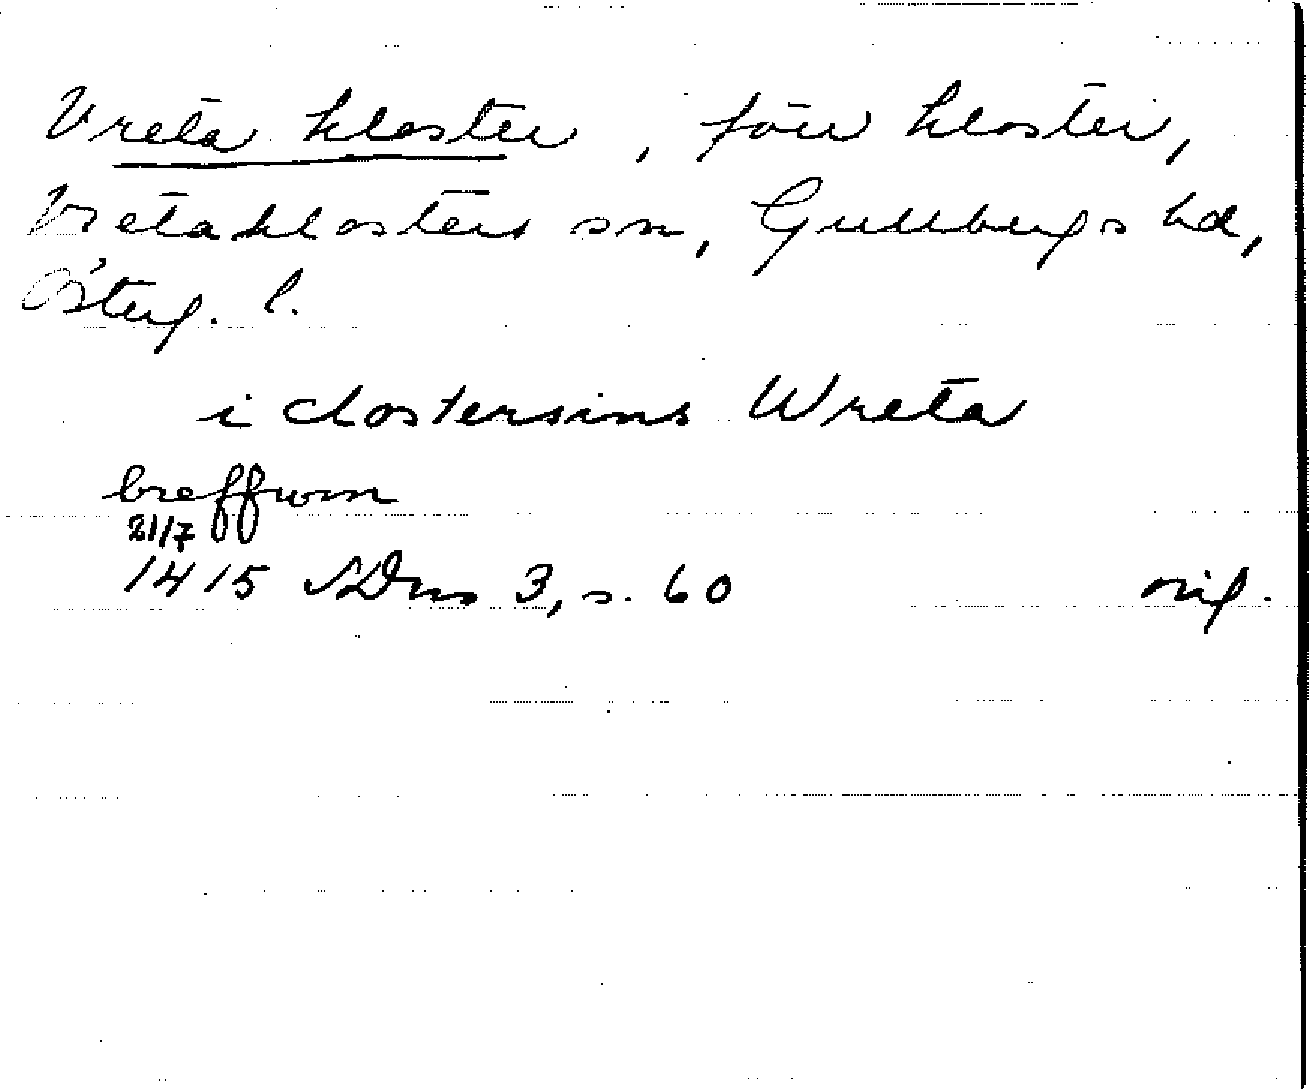 Vreta kloster, förr kloster,
Vreta klosters sn, Gullbergs hd,
Österg. l.
i clostersins Wreta
breffwm
21/7
1415 SDns 3, s. 60 orig.